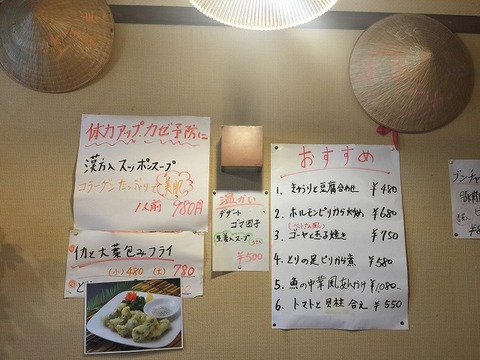 体力アップ、カゼ予防に
漢方入スッポンスープ
コラーゲンたっぷりで美肌
1人前 980円
イカと大葉包みフライ
(小)480 (大)780
温かい
デザート
ゴマ団子
生姜入スープ
¥500
おすすめ
1. きゅうりと豆腐合わせ ¥480
2. ホルモンピリカラ炒め ¥680
(ベトナム風)
3. ゴーヤと玉子焼き ¥750
4. とりの足ピリから煮 ¥580
5. 魚の中華風あんかけ ¥1080
6. トマトと貝柱合え ¥550
ブンチャ